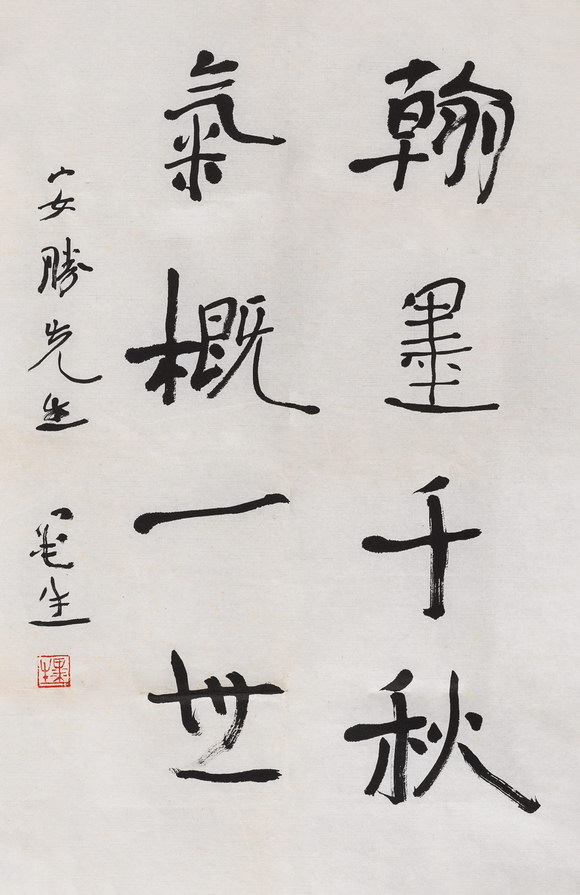 翰墨千秋
氣概一世
安勝先生